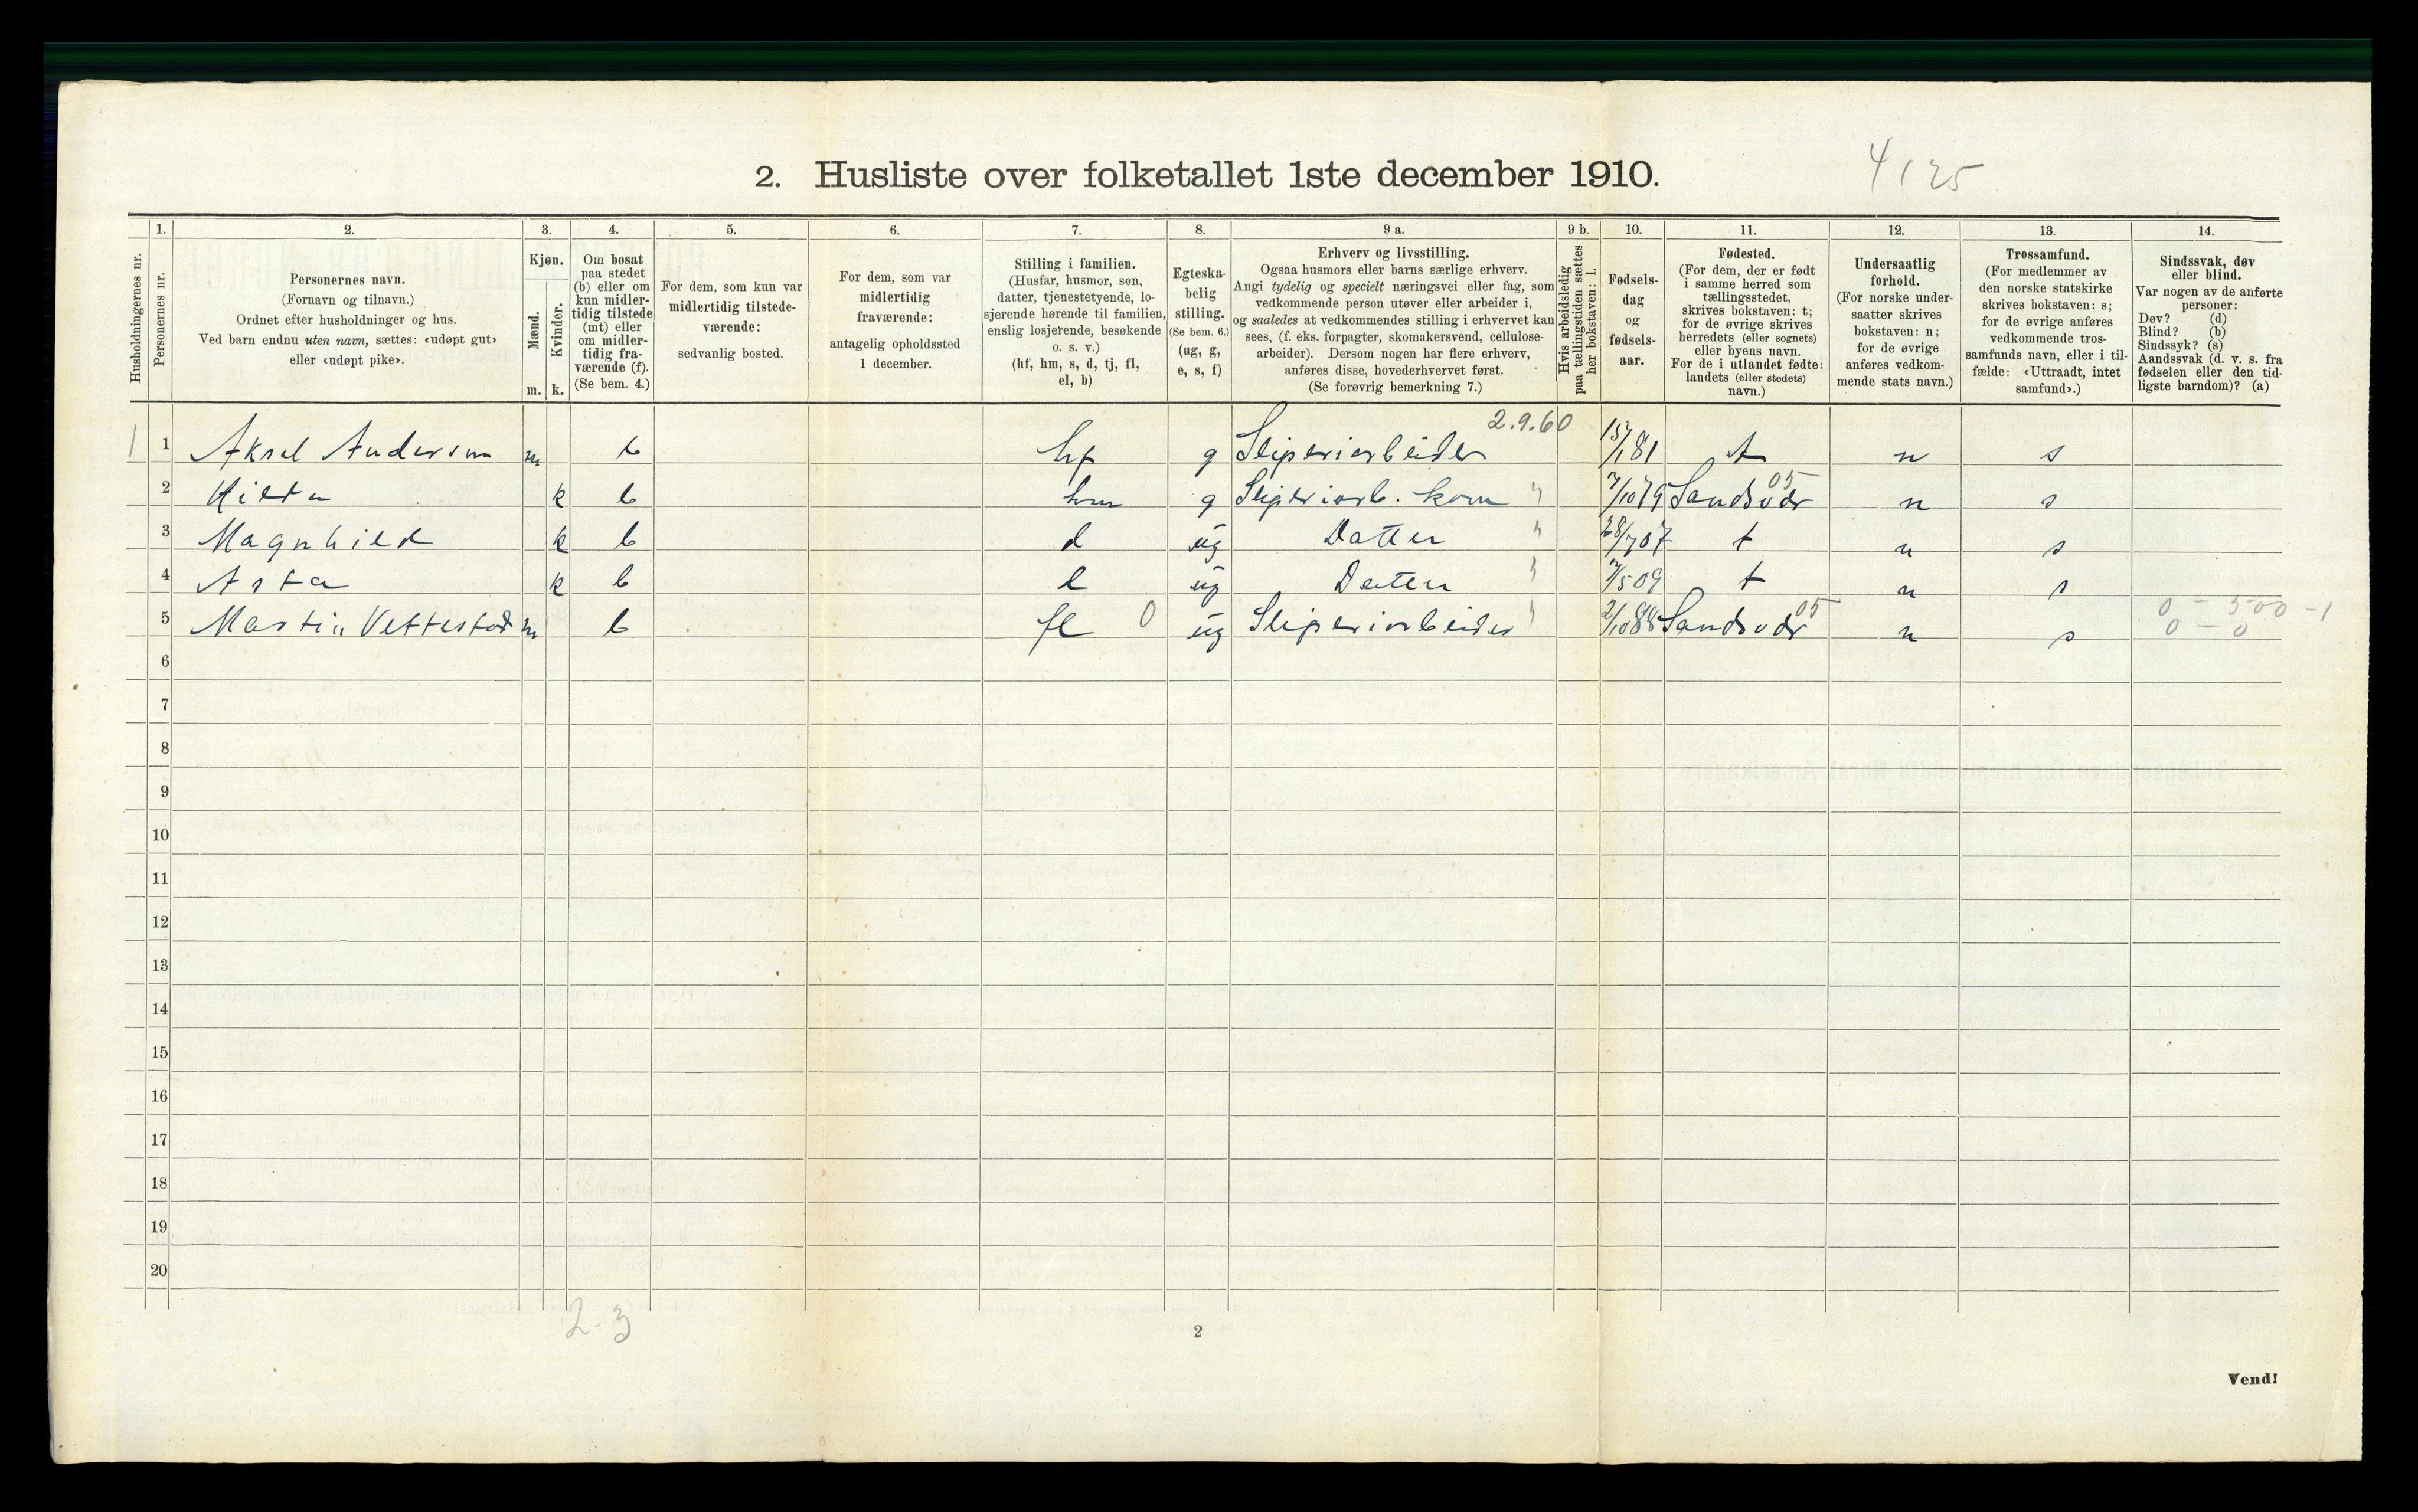 2. Husliste over folketallet 1ste december 1910.
4125
1. 2. 3. 4. 5. 6. 7. 8. 9 a. 9 b. 10. 11. 12. 13. 14.
Husholdningernes nr.
Personernes nr.
Personernes navn.
(Fornavn og tilnavn.)
Ordnet efter husholdninger og hus.
Ved barn endnu uten navn, sættes: «udøpt gut»
eller «udøpt pike».
Kjøn.
Mænd.
Kvinder.
m. k.
Om bosat
paa stedet
(b) eller om
kun midler-
tidig tilstede
(mt) eller
om midler-
tidig fra-
værende (f).
(Se bem. 4.)
For dem, som kun var
midlertidig tilstede-
værende:
sedvanlig bosted.
For dem, som var
midlertidig
fraværende:
antagelig opholdssted
1 december.
Stilling i familien.
(Husfar, husmor, søn,
datter, tjenestetyende, lo-
sjerende hørende til familien,
enslig losjerende, besøkende
o. s. v.)
(hf, hm, s, d, tj, fl,
el, b)
Egteska-
belig
stilling.
(Se bem. 6.)
(ug, g,
e, s, f)
Erhverv og livsstilling.
Ogsaa husmors eller barns særlige erhverv.
Angi tydelig og specielt næringsvei eller fag, som
vedkommende person utøver eller arbeider i,
og saaledes at vedkommendes stilling i erhvervet kan
sees, (f. eks. forpagter, skomakersvend, cellulose-
arbeider). Dersom nogen har flere erhverv,
anføres disse, hovederhvervet først.
(Se forøvrig bemerkning 7.)
Hvis arbeidsledig
paa tællingstiden sættes
her bokstaven: l.
Fødsels-
dag
og
fødsels-
aar.
Fødested.
(For dem, der er født
i samme herred som
tællingsstedet,
skrives bokstaven: t;
for de øvrige skrives
herredets (eller sognets)
eller byens navn.
For de i utlandet fødte:
landets (eller stedets)
navn.)
Undersaatlig
forhold.
(For norske under-
saatter skrives
bokstaven: n;
for de øvrige
anføres vedkom-
mende stats navn.)
Trossamfund.
(For medlemmer av
den norske statskirke
skrives bokstaven: s;
for de øvrige anføres
vedkommende tros-
samfunds navn, eller i til-
fælde: «Uttraadt, intet
samfund».)
Sindssvak, døv
eller blind.
Var nogen av de anførte
personer:
Døv? (d)
Blind? (b)
Sindssyk? (s)
Aandssvak (d. v. s. fra
fødselen eller den tid-
ligste barndom)? (a)
2.9.60
1 1 Aksel Andersen m b hf g Sliperiarbeider 15/1 81 t n s
2 Hilda k b hm g Sliperiarb. kone 7/10 79 Sandsvær 05 n s
3 Magnhild k b d ug Datter 28/7 07 t n s
4 Asta k b d ug Datter 7/5 09 t n s
5 Martin Vettestad m b fl 0 ug Sliperiarbeider 2/10 88 Sandsvær 05 n s 0 - 500 - 1
0 - 0
6
7
8
9
10
11
12
13
14
15
16
17
18
19
20
2-3
2
Vend!